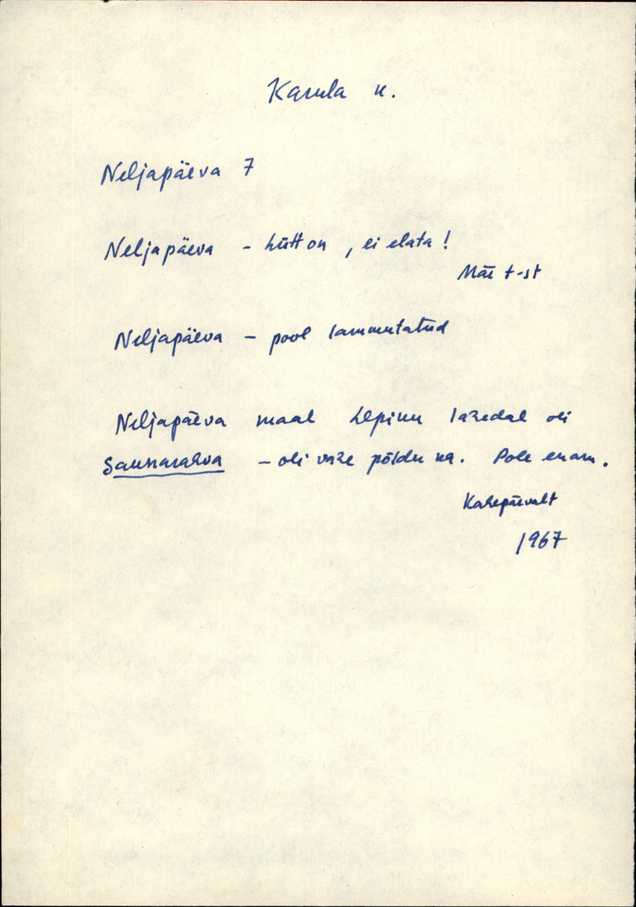 Karula k.
Neljapäeva 7
Neljapäeva - hütt on, ei elata!
Mäe t-st
Neljapäeva - pool lammutatud
Neljapäeva maal Lepiku lagedal oli
Saunarahva - oli väike põldu ka. Pole enam.
1967